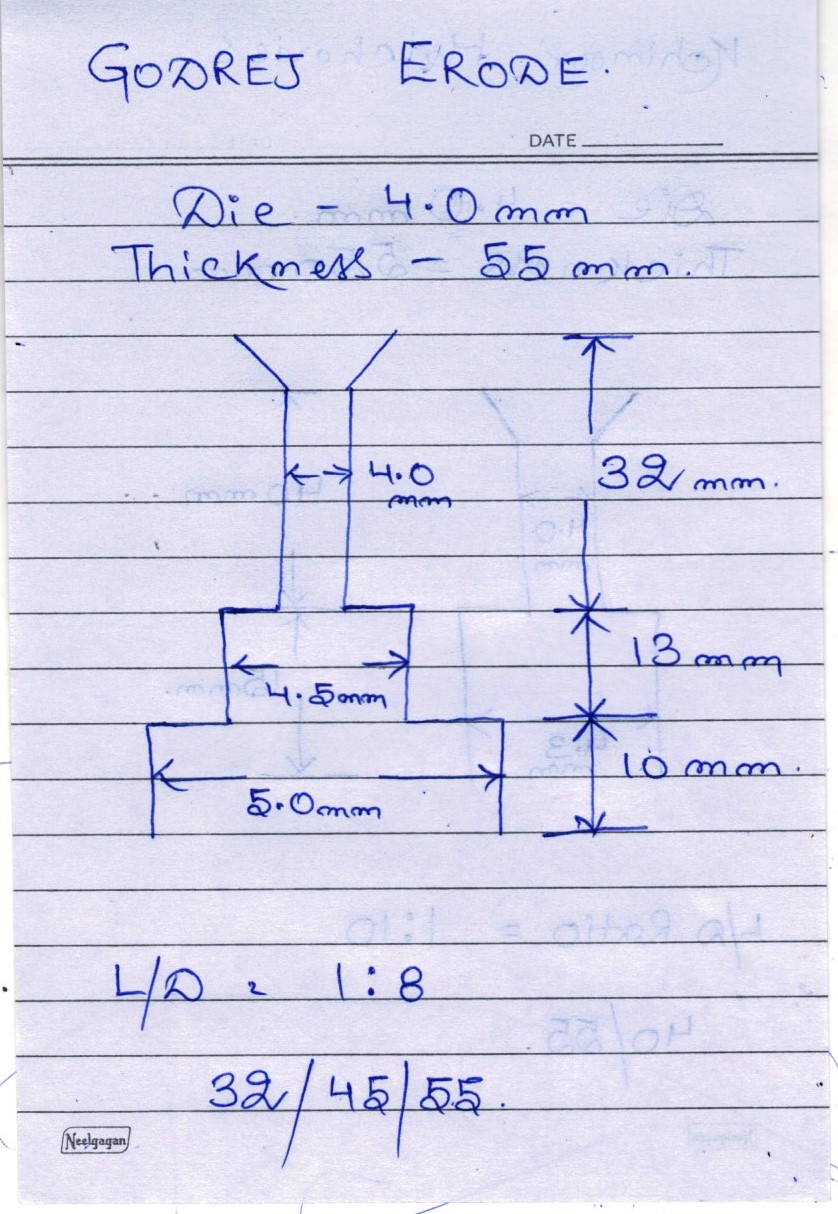 GODREJ ERODE.
DATE
Die - 4.0 mm
Thickness - 55 mm.
4.0
mm
32 mm.
13 mm
4.5mm
10 mm.
5.0mm
L/D = 1:8
32/45/55.
Neelgagan